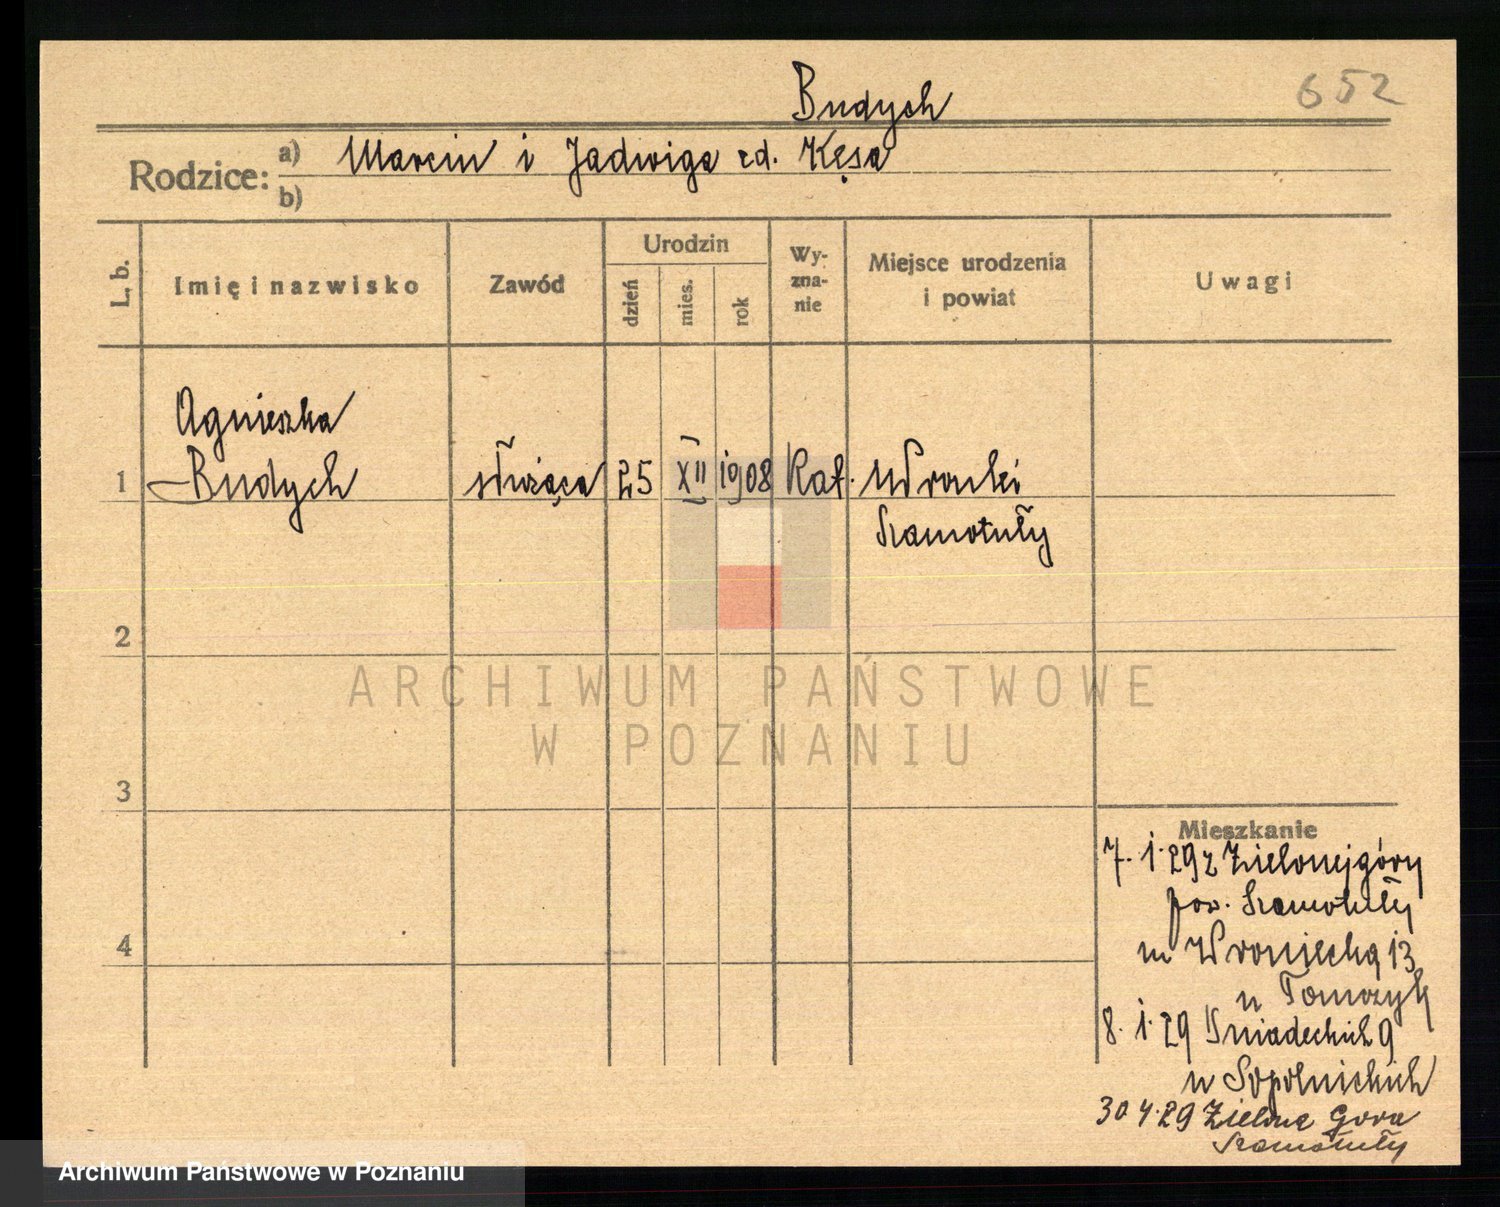 652
Budych
Rodzice: a) Marcin i Jadwiga zd. Kęsa
b)
L. b.
Imię i nazwisko
Zawód
Urodzin
dzień
mies.
rok
Wy-
zna-
nie
Miejsce urodzenia
i powiat
Uwagi
Agnieszka
1 Budych służąca 25 XII 1908 Kat. Wronki
Szamotuły
2
3
4
Mieszkanie
7. 1. 29 z Zielonejgóry
pow. Szamotuły
Wroniecka 13
u Tomczyk
8. 1. 29 Śniadeckich 9
u Sopolnickich
30 4. 29 Zielona Gora
Szamotuły
ARCHIWUM PAŃSTWOWE
W POZNANIU
Archiwum Państwowe w Poznaniu